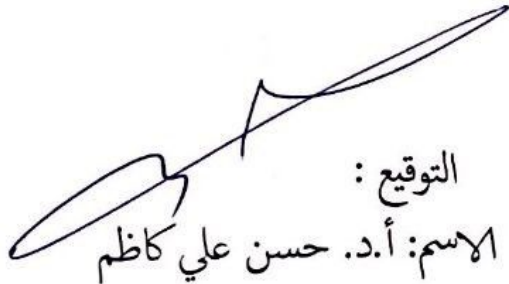 التوقيع :
الاسم: أ.د. حسن علي كاظم